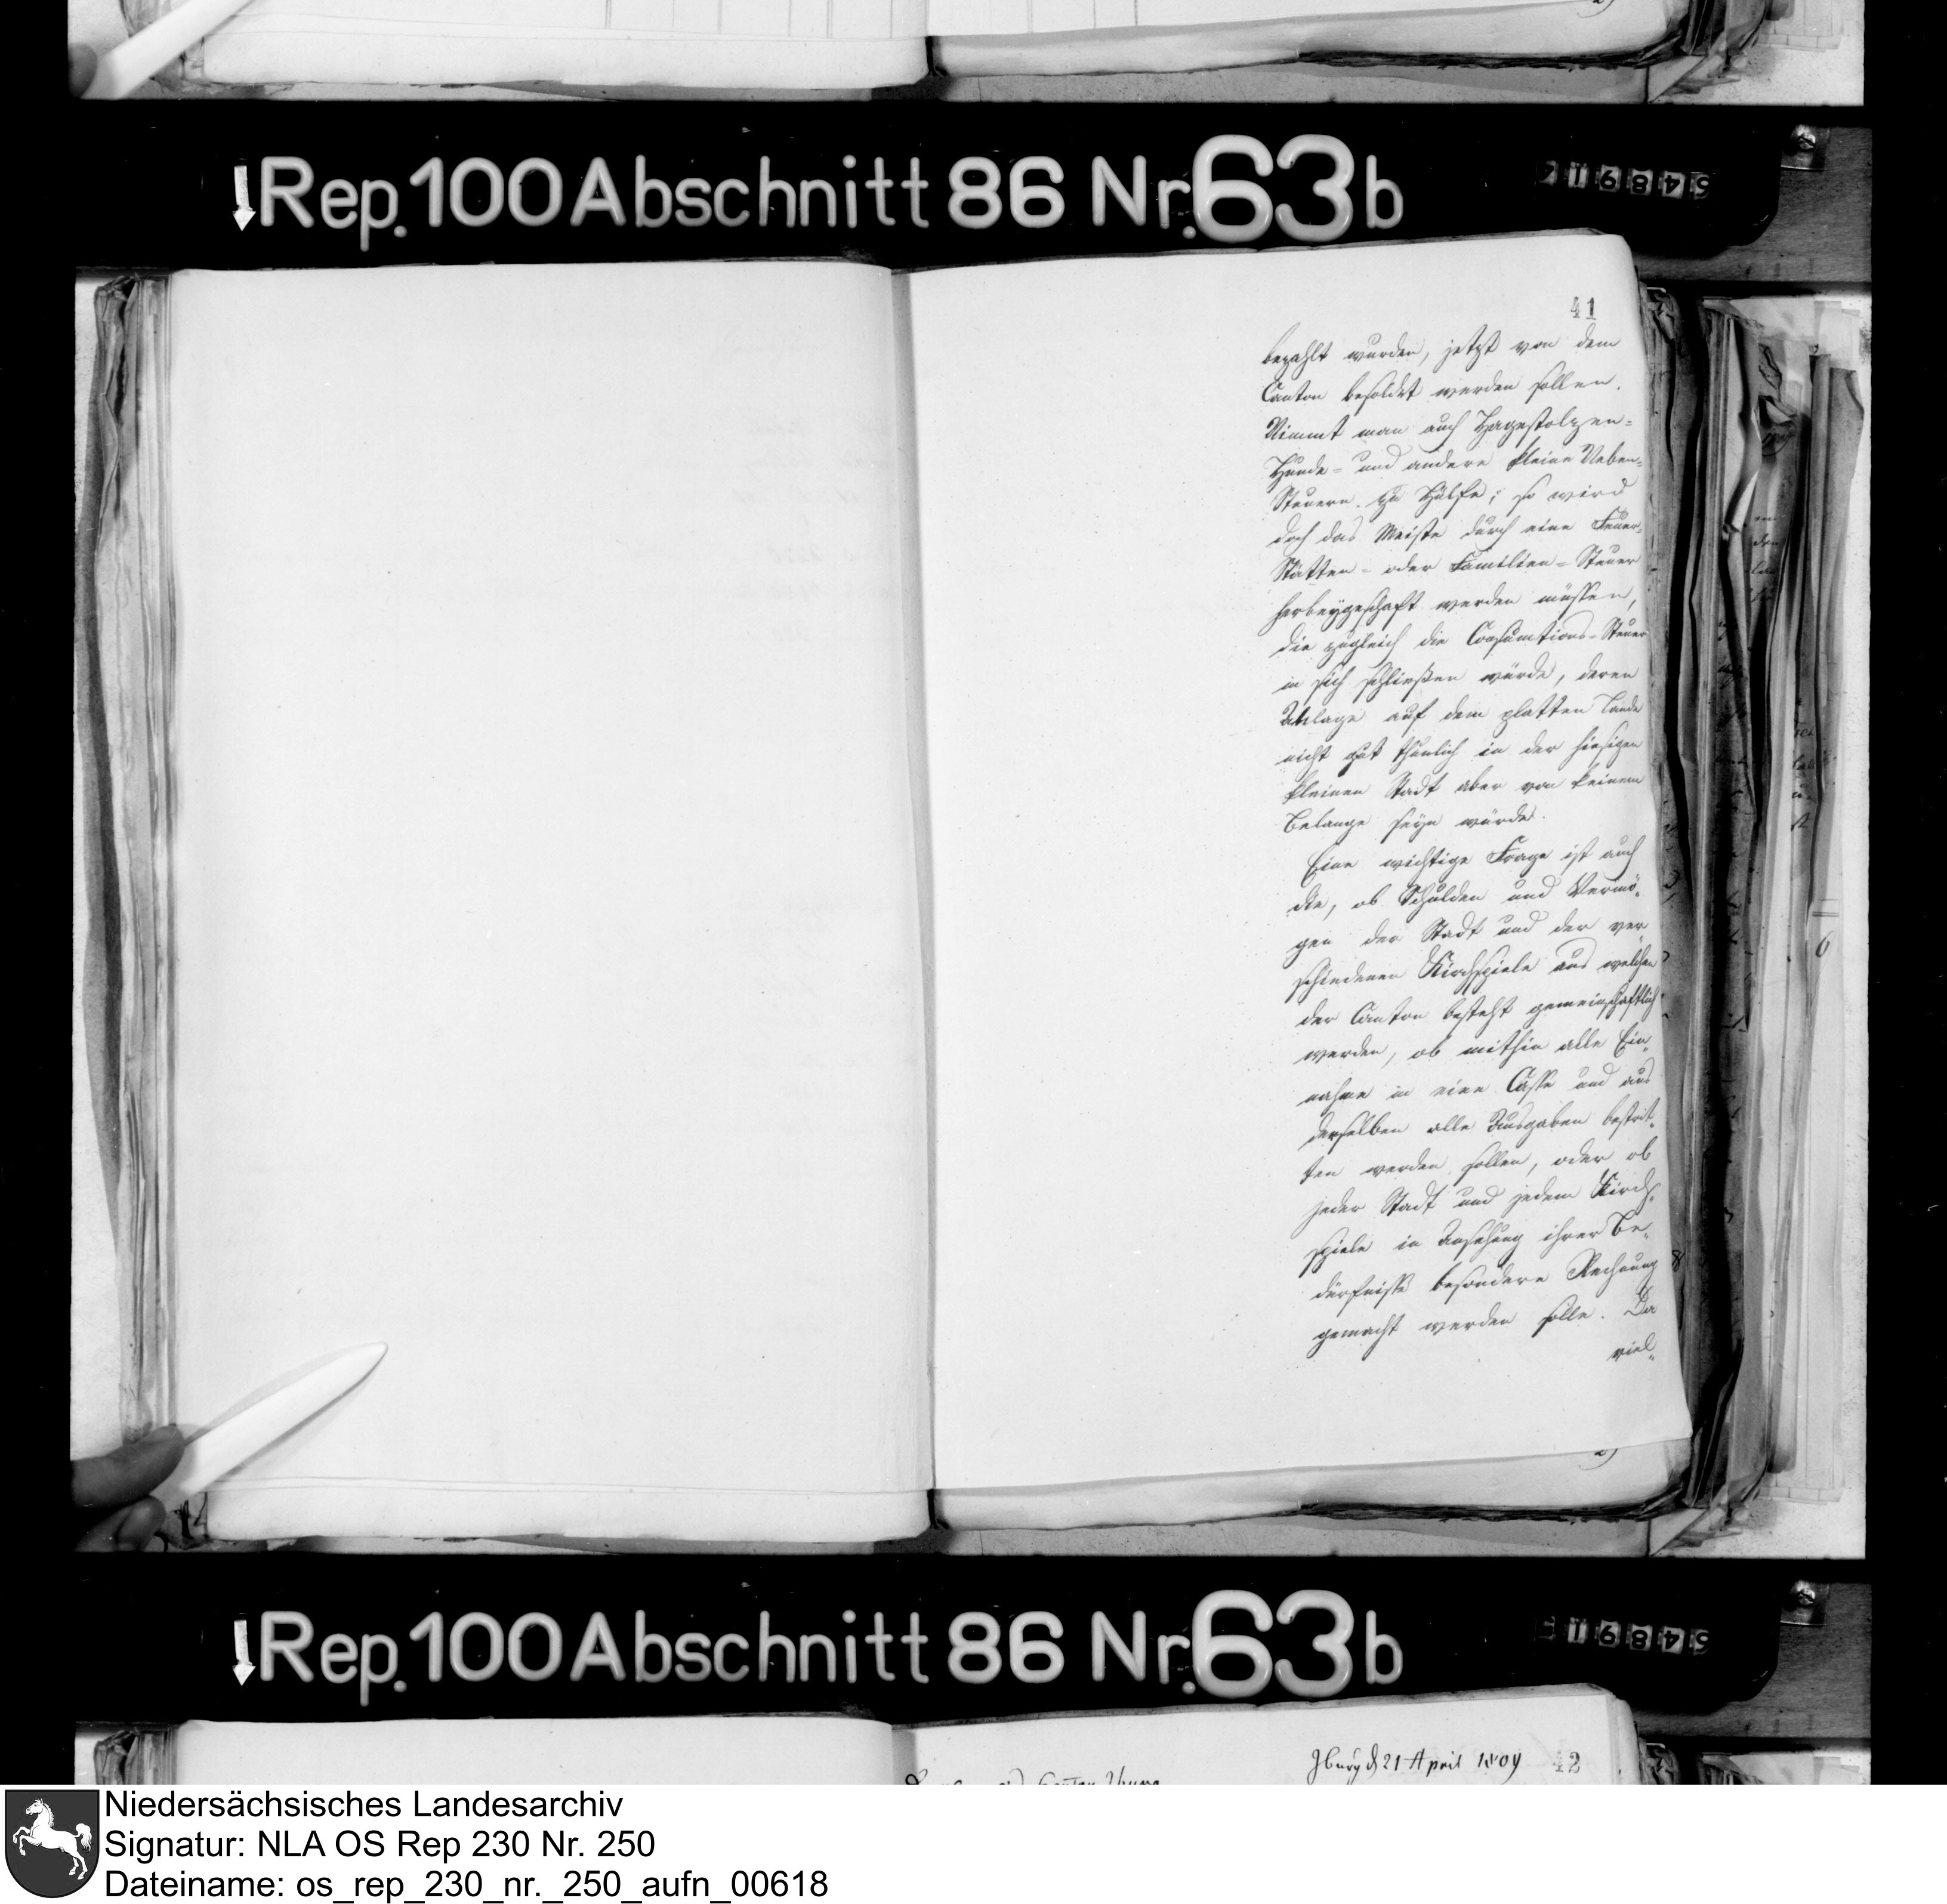 Rep. 100 Abschnitt 86 Nr. 63 b
41
bezahlt wurden, jetzt von dem
Canton besoldet werden sollen.
Nimmt man auch Hagestolzen-
Hunde- und andere kleine Neben-
Steuern zu Hülfe; so wird
doch das Meiste durch eine Feuer-
Stätten- oder Familien-Steuer
herbeygeschaft werden müssen,
die zugleich die Consumtions-Steuer
in sich schließen würde, deren
Anlage auf dem platten Lande
nicht gut thunlich in der hiesigen
kleinen Stadt aber von keinem
Belange seyn würde.
Eine wichtige Frage ist auch
die, ob Schulden und Vermö-
gen der Stadt und der ver
schiedenen Kirchspiele aus welchen
der Canton besteht gemeinschaftlich
werden, ob mithin alle Ein-
nahme in eine Casse und aus
derselben alle Ausgaben bestrit-
ten werden sollen, oder ob
jeder Stadt und jedem Kirch-
spiele in Ansehung ihrer Be-
dürfnisse besondere Rechnung
gemacht werden solle. Da
viel-
Rep. 100 Abschnitt 86 Nr. 63 b
Iburg d 21 April 1809
42
Niedersächsisches Landesarchiv
Signatur: NLA OS Rep 230 Nr. 250
Dateiname: os_rep_230_nr._250_aufn_00618